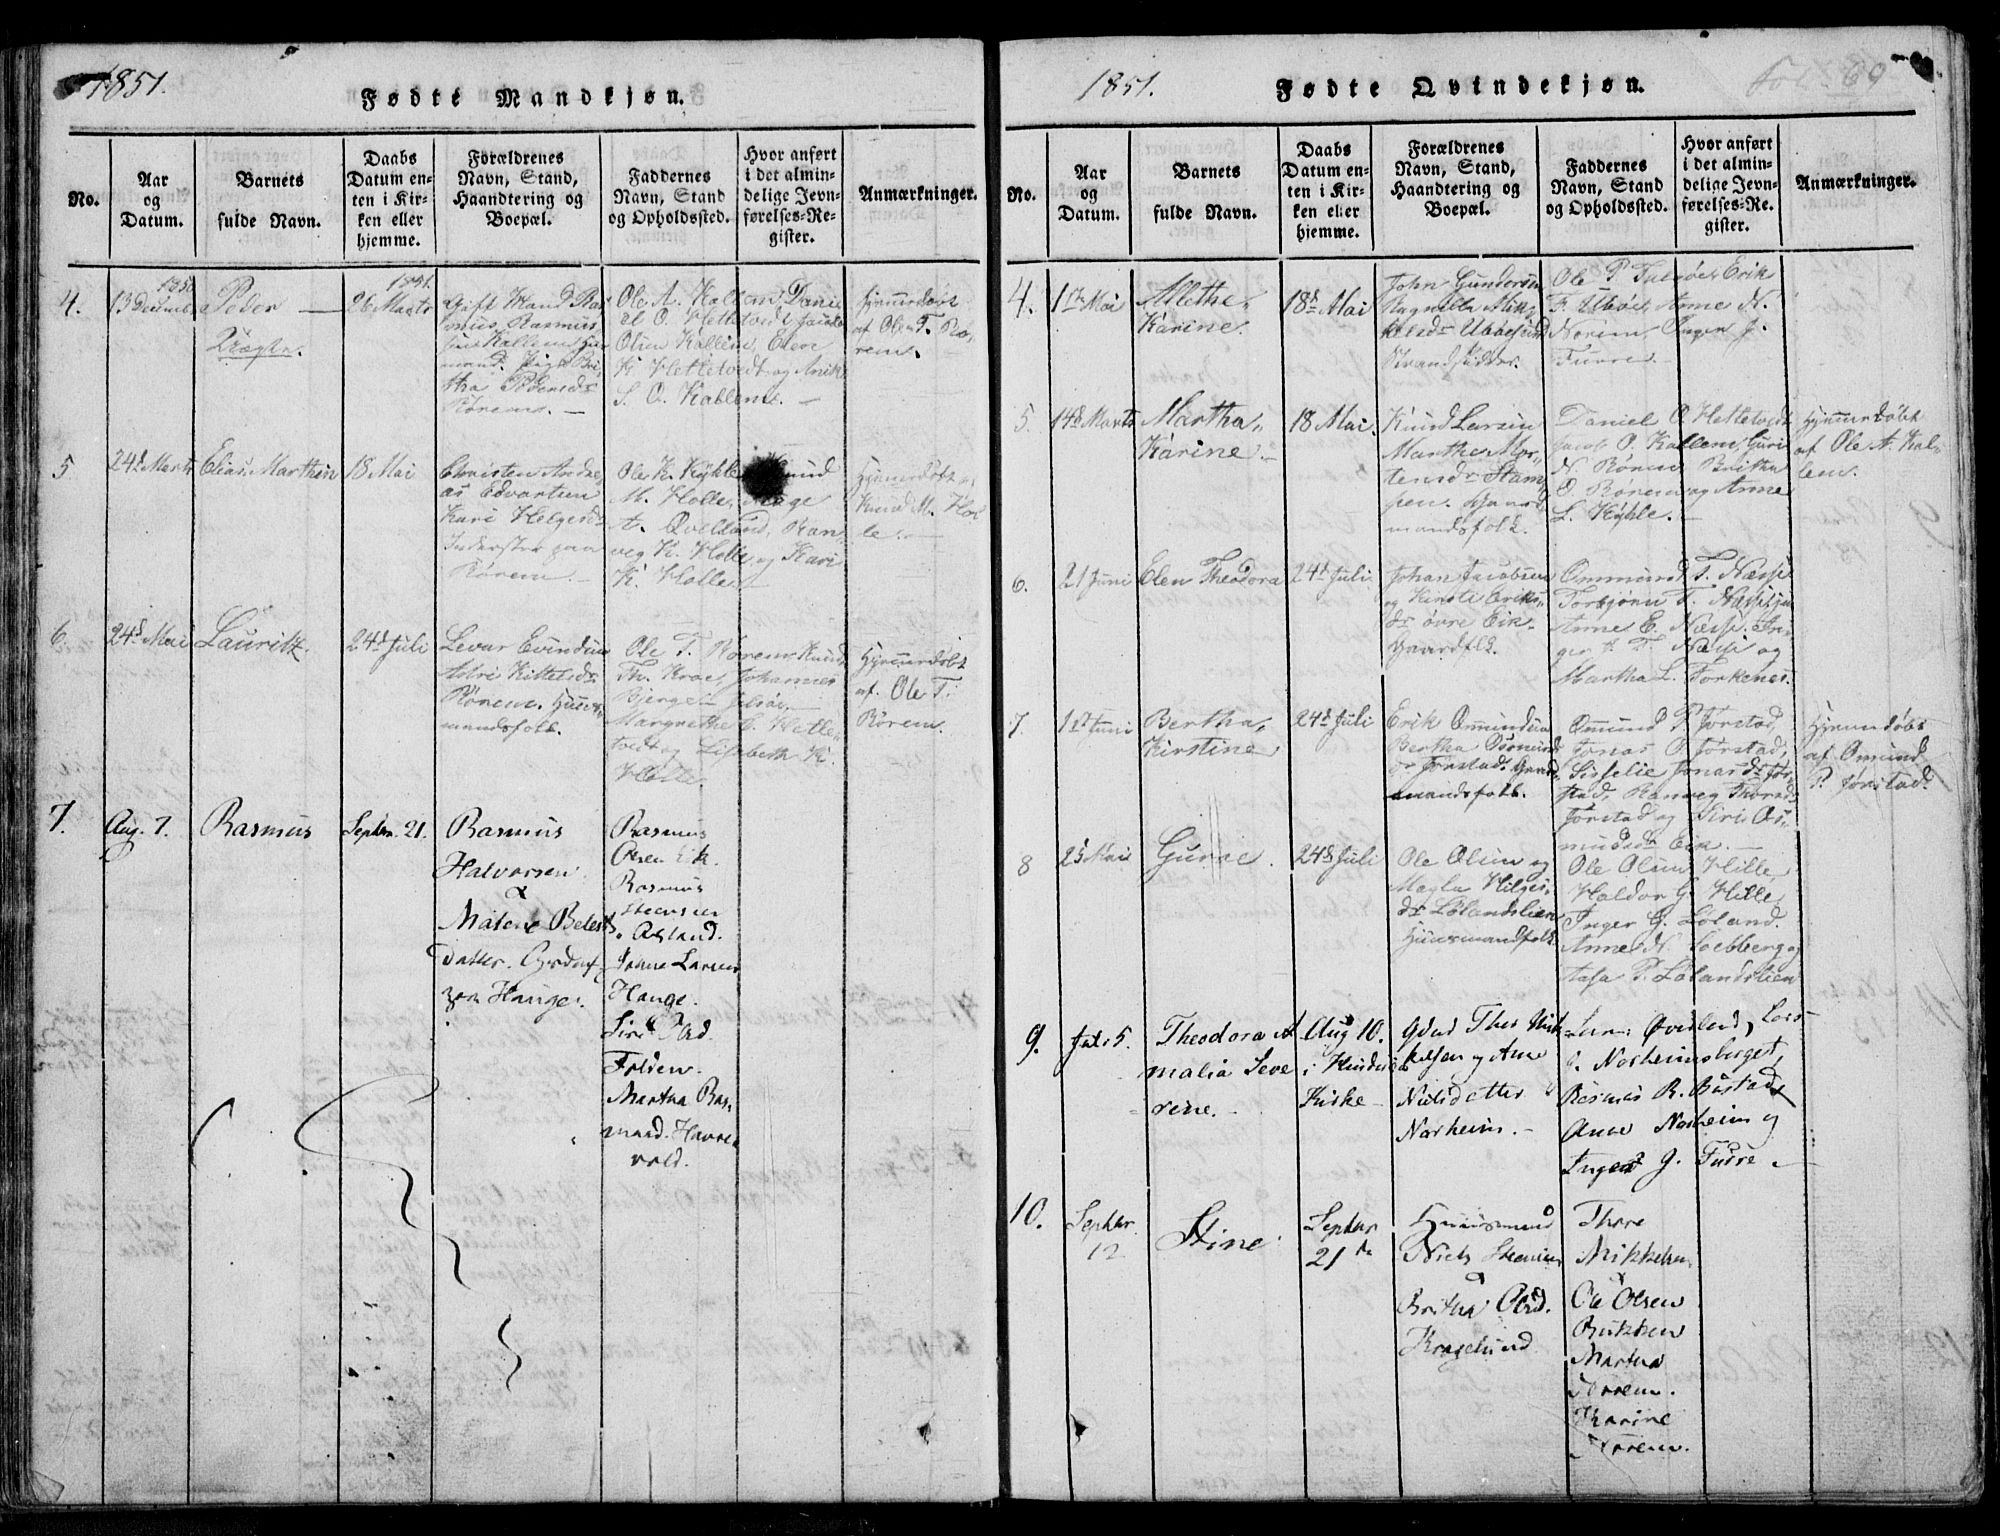 1851.
Fødte Mandkjøn.
No.
Aar
og
Datum.
Barnets
fulde Navn.
Daabs
Datum en-
ten i Kir-
ken eller
hjemme.
Forældrenes
Navn, Stand,
Haandtering og
Boepæl.
Faddernes
Navn, Stand
og Opholdssted.
Hvor anført
i det almin-
delige Jevn-
førelses-Re-
gister.
Anmærkninger.
4.
1850
13 December
Peder
Uægte.
1851.
26 Marts
Gift Mand Ras
mus Rasmus
sen Kallem, Huus
mand. Pige Bri
tha Pedersdr
Rørem. —
Ole A. Kallem, Dani
el O. Hettetvedt, Jacob
Olsen Kallem, Elen
K. Hettetvedt og Anike
S. O. Kallem. —
Hjemmedøbt
af Ole T. Rø
rem.
5
24de Marts
Elias Marthin
18 Mai
Christen Andre
as Edvartsen
Kari Helgesdr
Inderster paa
Rørem. —
Ole K. Kyhle, Knud
M. Holle, Aage
A. Qvelland, Ran
veg K. Holle og Kari
K. Holle
Hjemmedøbt af
Knud M. Hol
le. —
6.
24de Mai
Lauritz.
24de Juli
Levar Evindsen
Astri Kittelsdr
Rørem. Huus
mandsfolk.
Ole T. Rørem, Knud
Th. Kroe, Johannes
Bjerge
Margrethe O. Hette
tvedt og Lisebeth K.
Holle.
Hjemmedøbt
af Ole T.
Rørem.
7.
Aug. 7.
Rasmus
Septbr. 21.
Rasmus
Halvorsen
&
Malene
Datter.
paa Hauge.
Rasmus
Olsen Eik.
Rasmus
Steensen
Aasland.
Larsen
Hauge.
Siri Olsd.
Folden.
Martha Ras
musd. Havre
vold.
1851.
Fødte Qvindekjøn.
Fol. 69
No.
Aar
og
Datum.
Barnets
fulde Navn.
Daabs
Datum en-
ten i Kir-
ken eller
hjemme.
Forældrenes
Navn, Stand,
Haandtering og
Boepæl.
Faddernes
Navn, Stand
og Opholdssted.
Hvor anført
i det almin-
delige Jevn-
førelses-Re-
gister.
Anmærkninger.
4.
1ste Mai
Alethe
Karine.
18de Mai
John Gundersen
Ragnilla Mik
kelsdr Ubbøsund
Strandsidder.
Ole P. Tutsøe, Erik
F. Ubøe, Anne N.
Norem, Inger J.
Furre.
5.
14de Marts
Martha
Karine.
18 Mai.
Knud Larsen
Marthe Mor
tensdr Stam
pen. Huus
mandsfolk.
Daniel O. Hettetvedt
Jacob O. Kallem, Guri
N. Rørem, Britha
O. Rørem og Anne
L. Kyhle.
Hjemmedøbt
af Ole A. Kal
lem.
6.
21 Juni
Elen Theodora
24de Juli
Johan Jacobsen
og Kirsti Eriks
dr øvre Eik.
Gaardfolk.
Ommund T. Næsse
Torbjørn T. Næsse
Anne E. Næsse, In
ger K. T. Næsse og
Martha L. Torkenes.
7.
1ste Juni
Bertha
Kirstine
24de Juli
Erik Omundsen
Bertha Osmunds
dr Jørstad. Gaard
mandsfolk.
Omund P. Jørstad,
Jonas O. Jørstad,
Sisselie Jonasdr Jør
stad, Ranveg Thores
Jørstad og Siri Os
mundsdr Eik.
Hjemmedøbt
af Omund
P. Jørstad.
8
25 Mai
Gurine.
24de Juli
Ole Olsen og
Magla Helges
dr Lølandslien
Huusmandfolk.
Ole Olsen Hille,
Haldor G. Hille,
Inger G. Løland.
Anne N. Soebberg og
Aasa P. Lølandslien
9.
Juli 5.
Theodora A
malia Seve
rine. —
Aug 10.
i
Kirke
Gdmd Thor Mik
kelsen og Ane
Nielsdatter
Norheim. —
Lars Øverland, Lars
Norheimsberget,
Rasmus R. Bustad,
Anne Norheim og
Inger J. Furre. —
10.
Septbr.
12
Stine.
Septbr
21de
Huusmand
Niels Steensen
&
Britha Olsd.
Kragelund
Thore
Mikkelsen
Ole Olsen
Bukken
Martha
Norem.
Karine
Norem.